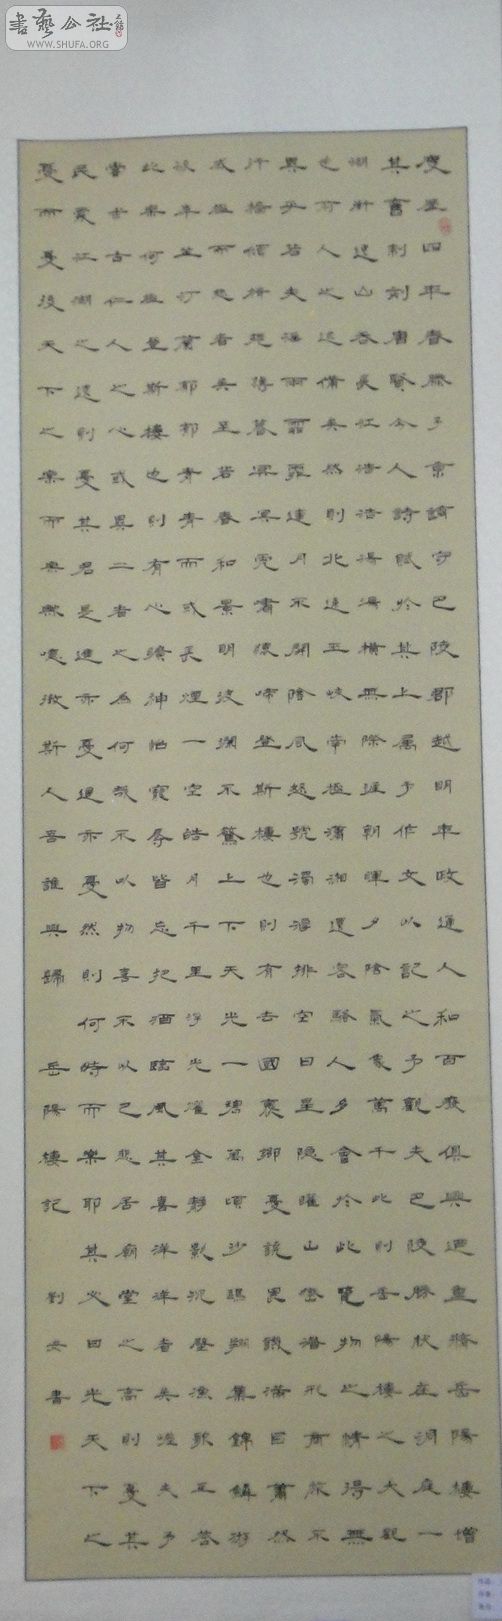 書藝公社
WWW.SHUFA.ORG
慶曆四年春滕子京謫守巴陵郡越明年政通人和百廢俱興迺重脩岳陽樓增
其舊制刻唐賢今人詩賦於其上屬予作文以記之予觀夫巴陵勝狀在洞庭一
湖銜遠山吞長江浩浩湯湯橫無際涯朝暉夕陰氣象萬千此則岳陽樓之大觀
也前人之述備矣然則北通巫峽南極瀟湘遷客騷人多會於此覽物之情得無
異乎若夫淫雨霏霏連月不開陰風怒號濁浪排空日星隱曜山岳潛形商旅不
行檣傾楫摧薄暮冥冥虎嘯猿啼登斯樓也則有去國懷鄉憂讒畏譏滿目蕭然
感極而悲者矣至若春和景明波瀾不驚上下天光一碧萬頃沙鷗翔集錦鱗游
泳岸芷汀蘭郁郁青青而或長煙一空皓月千里浮光耀金靜影沉璧漁歌互答
此樂何極登斯樓也則有心曠神怡寵辱皆忘把酒臨風其喜洋洋者矣嗟夫予
嘗求古仁人之心或異二者之為何哉不以物喜不以己悲居廟堂之高則憂其
民處江湖之遠則憂其君是進亦憂退亦憂然則何時而樂耶其必曰先天下之
憂而憂後天下之樂而樂歟噫微斯人吾誰與歸 岳陽樓記 劉 書